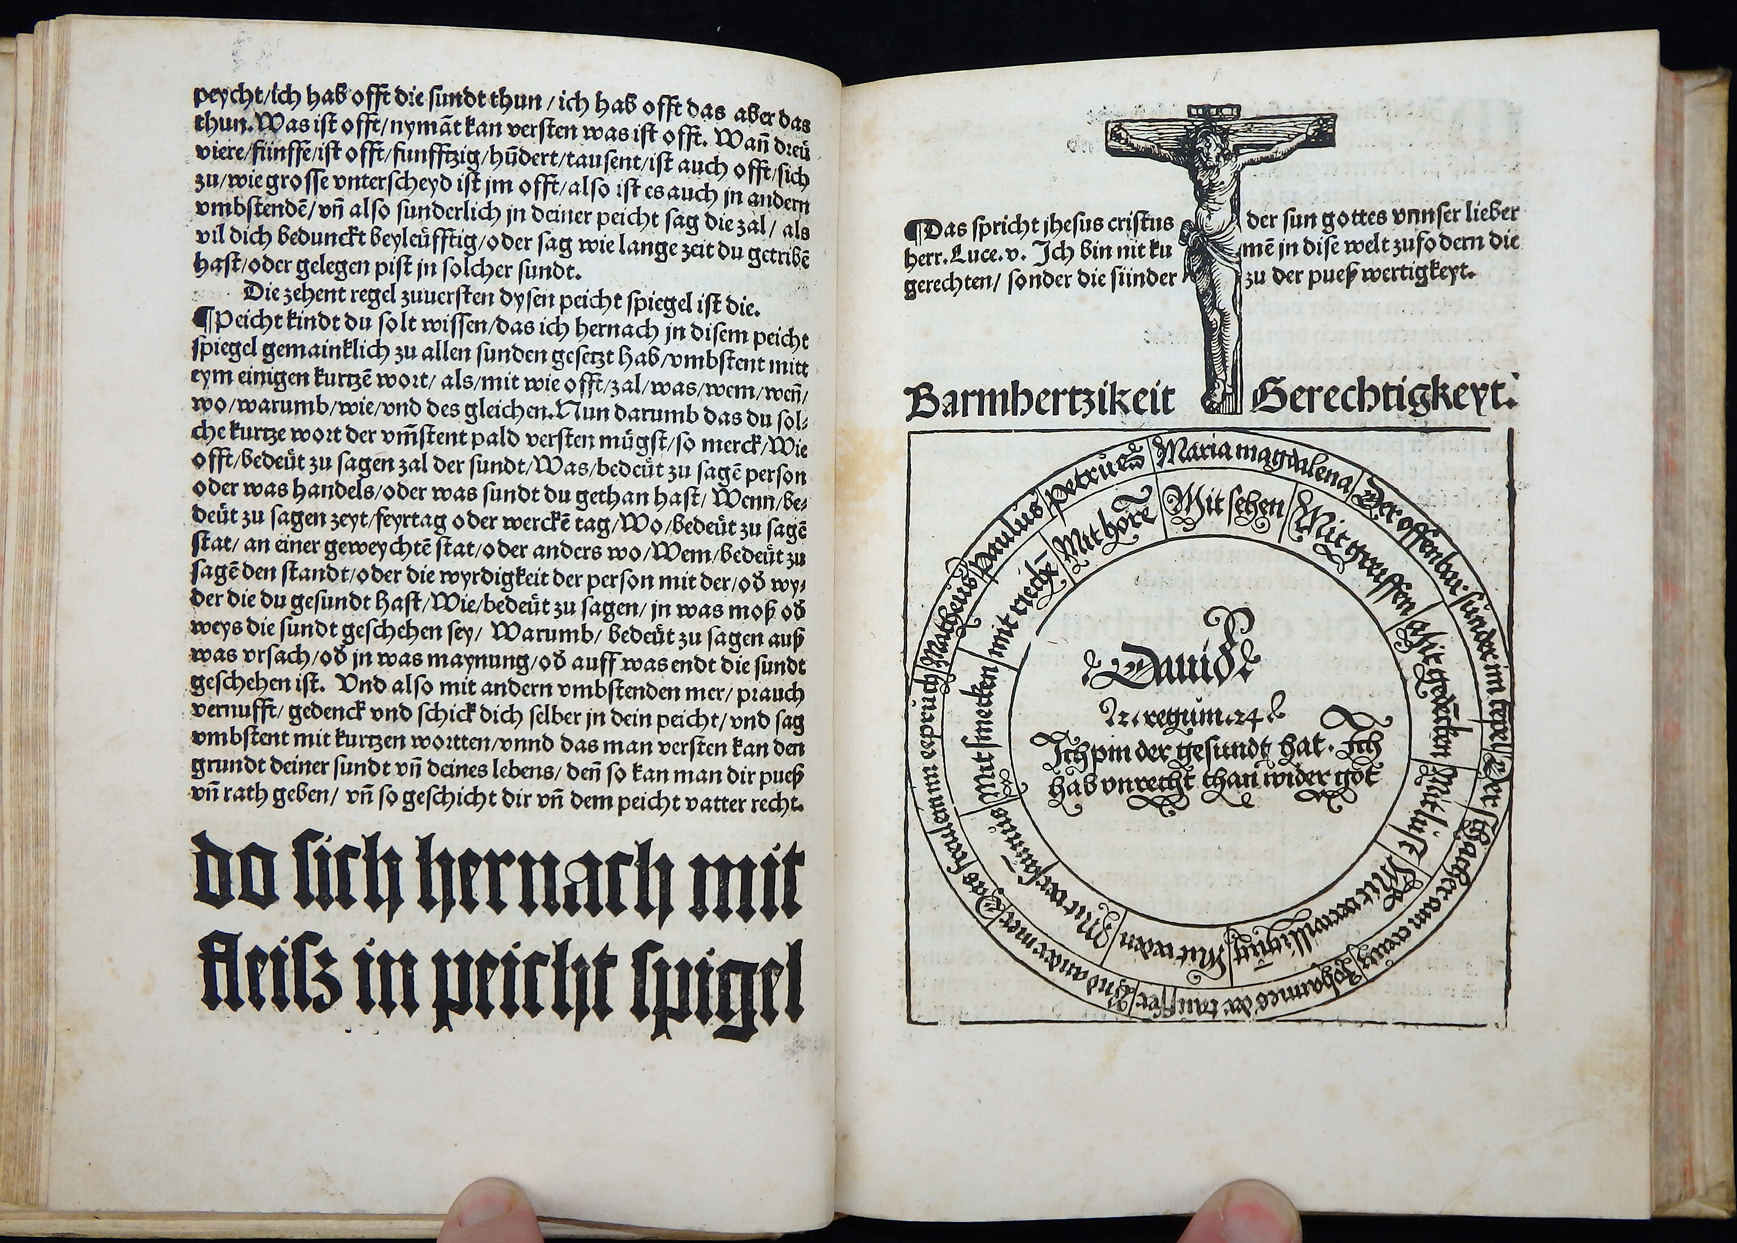 peycht/ich hab offt die sundt thun/ich hab offt das aber das
thun. Was ist offt/nymāt kan versten was ist offt. Wañ dreü
viere/fünffe/ist offt/funfftzig/hūdert/tausent/ist auch offt/sich
zu/wie grosse vnterscheyd ist jm offt/also ist es auch jn andern
vmbstendē/vñ also sunderlich jn deiner peicht sag die zal/als
vil dich bedunckt beyleüfftig/oder sag wie lange zeit du getribē
hast/oder gelegen pist jn solcher sundt.
Die zehent regel zuuersten dysen peicht spiegel ist die.
¶Peicht kindt du solt wissen/das ich hernach jn disem peicht
spiegel gemainklich zu allen sunden gesetzt hab/vmbstent mitt
eym einigen kurtzē wort/als/mit wie offt/zal/was/wem/weñ/
wo/warumb/wie/vnd des gleichen. Nun darumb das du sol⸗
che kurtze wort der vm̄stent pald versten mügst/so merck/Wie
offt/bedeüt zu sagen zal der sundt/Was/bedeüt zu sagē person
oder was handels/oder was sundt du gethan hast/Wenn/be⸗
deüt zu sagen zeyt/feyrtag oder werckē tag/Wo/bedeüt zu sagē
stat/an einer geweychtē stat/oder anders wo/Wem/bedeüt zu
sagē den standt/oder die wyrdigkeit der person mit der/od wy⸗
der die du gesundt hast/Wie/bedeüt zu sagen/jn was moß od
weys die sundt geschehen sey/Warumb/bedeüt zu sagen auß
was vrsach/od jn was maynung/od auff was endt die sundt
geschehen ist. Vnd also mit andern vmbstenden mer/prauch
vernufft/gedenck vnd schick dich selber jn dein peicht/vnd sag
vmbstent mit kurtzen wortten/vnnd das man versten kan den
grundt deiner sundt vñ deines lebens/deñ so kan man dir pueß
vñ rath geben/vñ so geschicht dir vñ dem peicht vatter recht.
do sich hernach mit
fleisz in peicht spigel
¶Das spricht jhesus cristus der sun gottes vnnser lieber
herr. Luce.v. Ich bin nit ku mē jn dise welt zufodern die
gerechten/sonder die sünder zu der pueß wertigkeyt.
Barmhertzikeit Gerechtigkeyt.
Maria magdalena
Der offenbar sunder im tepel
Der schacher am creutz
Johannes der tauffer
Vnd ander mer
Das frewlein
Matheus
Paulus
Petrus
Mit sehen
Mit greiffen
Mit gedēcken
Mit lust
Mit verwilligung
Mit wercken
Mit versaumnus
Mit smecken
mit riechē
Mit horē
Dauid
2 regum 24
Ich pin der gesundt hat. Ich
hab vnrecht than wider got